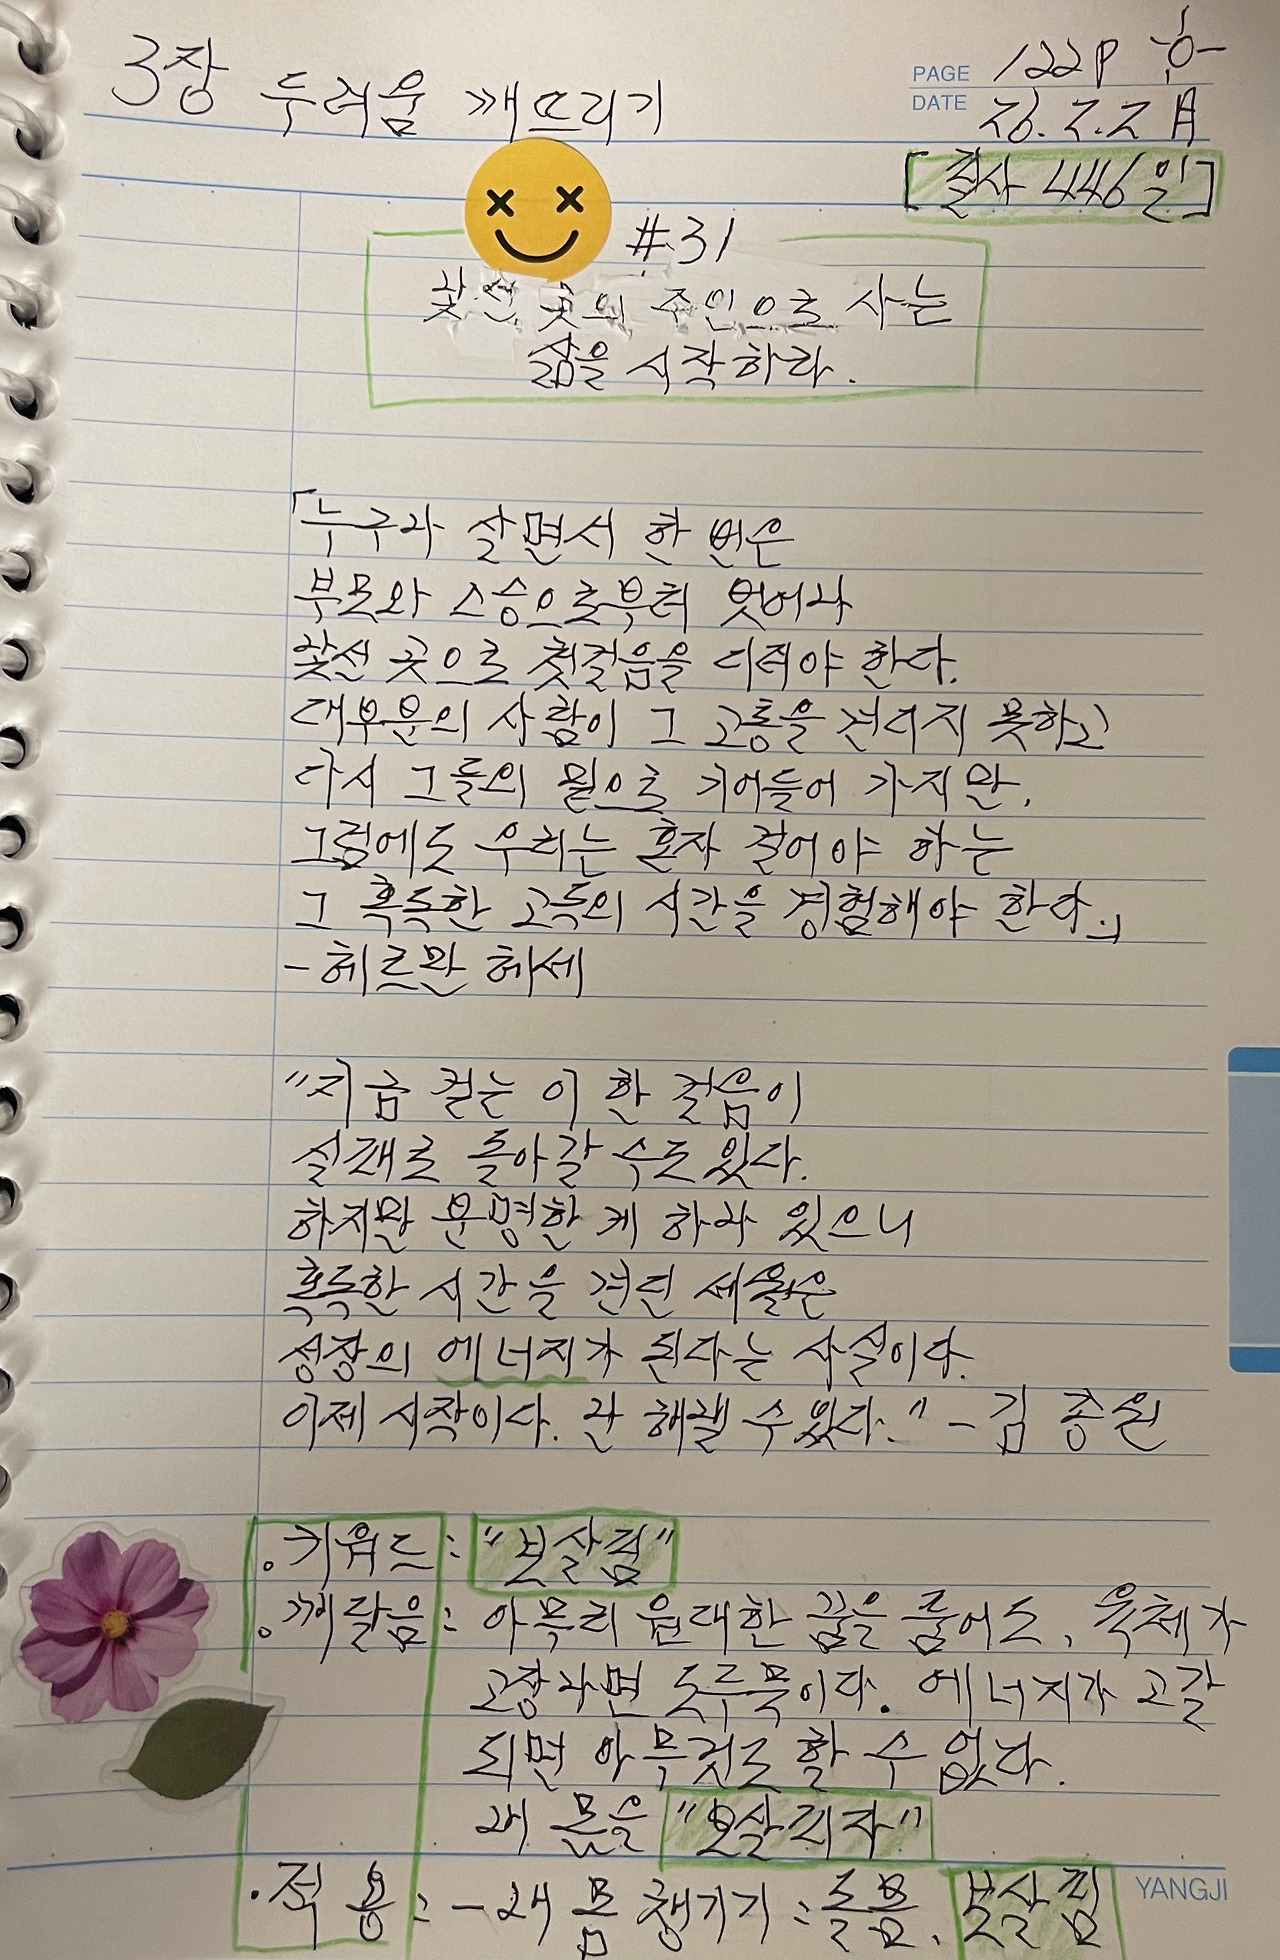 3장 두려움 깨뜨리기
PAGE 122P
DATE 26. 2. 2 月
[필사 446일]
#31
낯선 곳의 주인으로 사는
삶을 시작하라.
「누구나 살면서 한 번은
부모와 스승으로부터 벗어나
낯선 곳으로 첫걸음을 디뎌야 한다.
대부분의 사람이 그 고통을 견디지 못하고
다시 그들의 밑으로 기어들어 가지만,
그럼에도 우리는 혼자 걸어야 하는
그 혹독한 고독의 시간을 경험해야 한다.」
- 헤르만 헤세
"지금 걷는 이 한 걸음이
실패로 돌아갈 수도 있다.
하지만 분명한 게 하나 있으니
혹독한 시간을 견딘 세월은
성장의 에너지가 된다는 사실이다.
이제 시작이다. 난 해낼 수 있다." - 김종원
• 키워드 : "보살핌"
• 깨달음 : 아무리 원대한 꿈을 품어도, 육체가
고장나면 도루묵이다. 에너지가 고갈
되면 아무것도 할 수 없다.
내 몸을 "보살피자"
• 적용 : - 내 몸 챙기기 : 돌봄, 보살핌
YANGJI